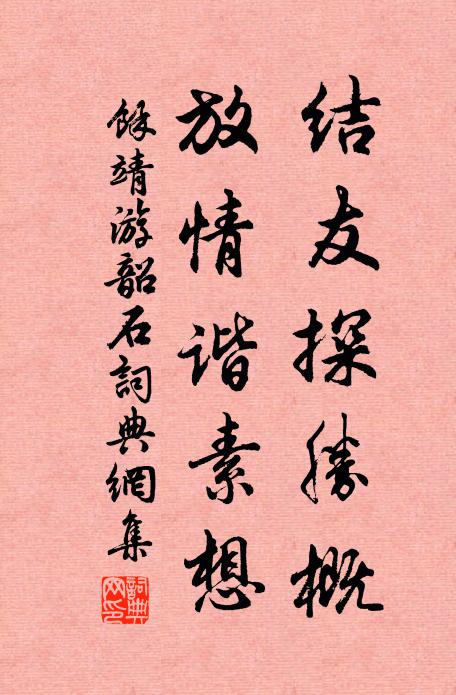 结友探勝概
放情谐素想
餘靖游韶石詞典網集
詞典網印